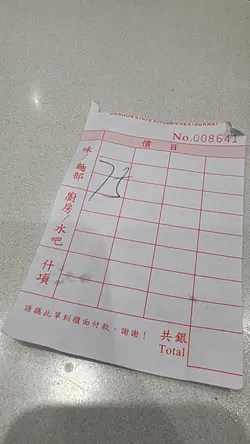 No.008641
價目
味/麵部
75
廚房/水吧
什項
請攜此單到櫃面付款，謝謝！
共銀
Total